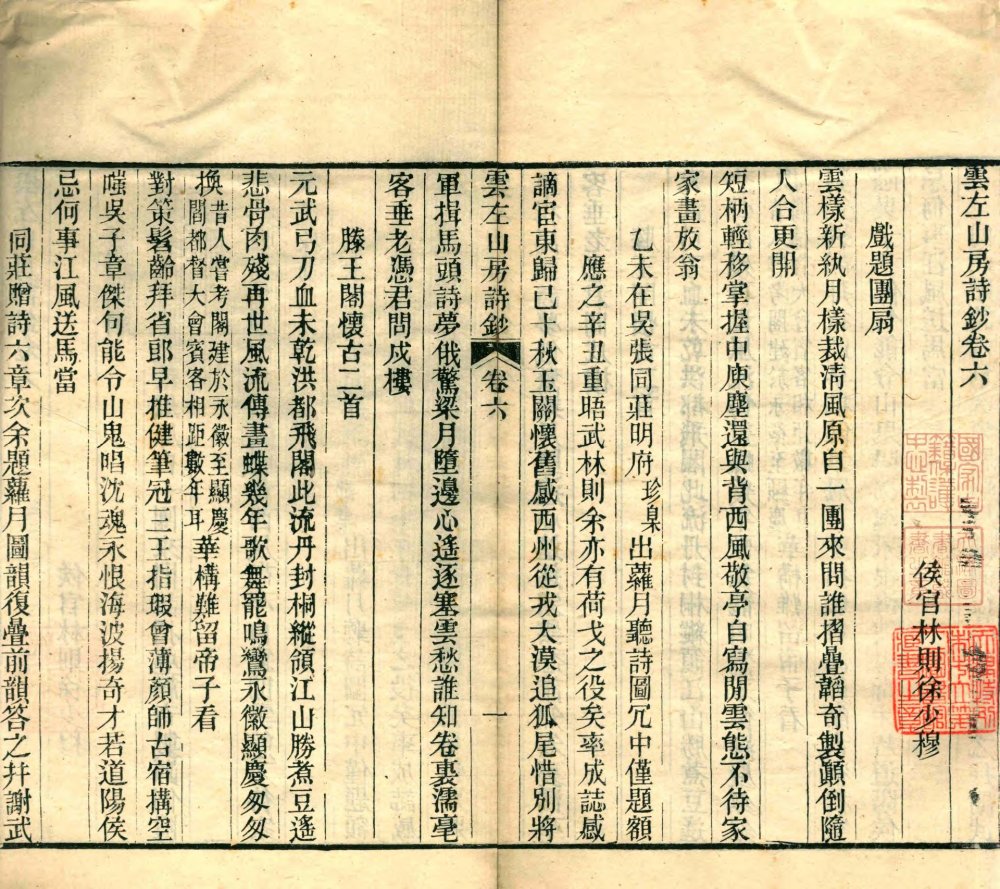 雲左山房詩鈔卷六
侯官林則徐少穆
戲題團扇
雲樣新紈月樣裁清風原自一團來問誰摺疊韜奇製顚倒隨
人合更開
短柄輕移掌握中庾塵還與背西風敬亭自寫閒雲態不待家
家畫放翁
乙未在吳張同莊明府珍臬出蘿月聽詩圖冗中僅題額
應之辛丑重晤武林則余亦有荷戈之役矣率成誌感
謫宦東歸已十秋玉關懷舊感西州從戎大漠追狐尾惜別將
雲左山房詩鈔 卷六 一
軍揖馬頭詩夢俄驚梁月墮邊心遙逐塞雲愁誰知卷裏濡毫
客垂老憑君問戍樓
滕王閣懷古二首
元武弓刀血未乾洪都飛閣此流丹封桐縱領江山勝煮豆遙
悲骨肉殘再世風流傳畫蝶幾年歌舞罷鳴鸞永徽顯慶匆匆
換昔人嘗考閣建於永徽至顯慶閻都督大會賓客相距數年耳華構難留帝子看
對策髫齡拜省郎早推健筆冠三王指瑕會薄顏師古宿構空
嗤吳子章傑句能令山鬼唱沈魂永恨海波揚奇才若道陽侯
忌何事江風送馬當
同莊贈詩六章次余題蘿月圖韻復疊前韻答之幷謝武